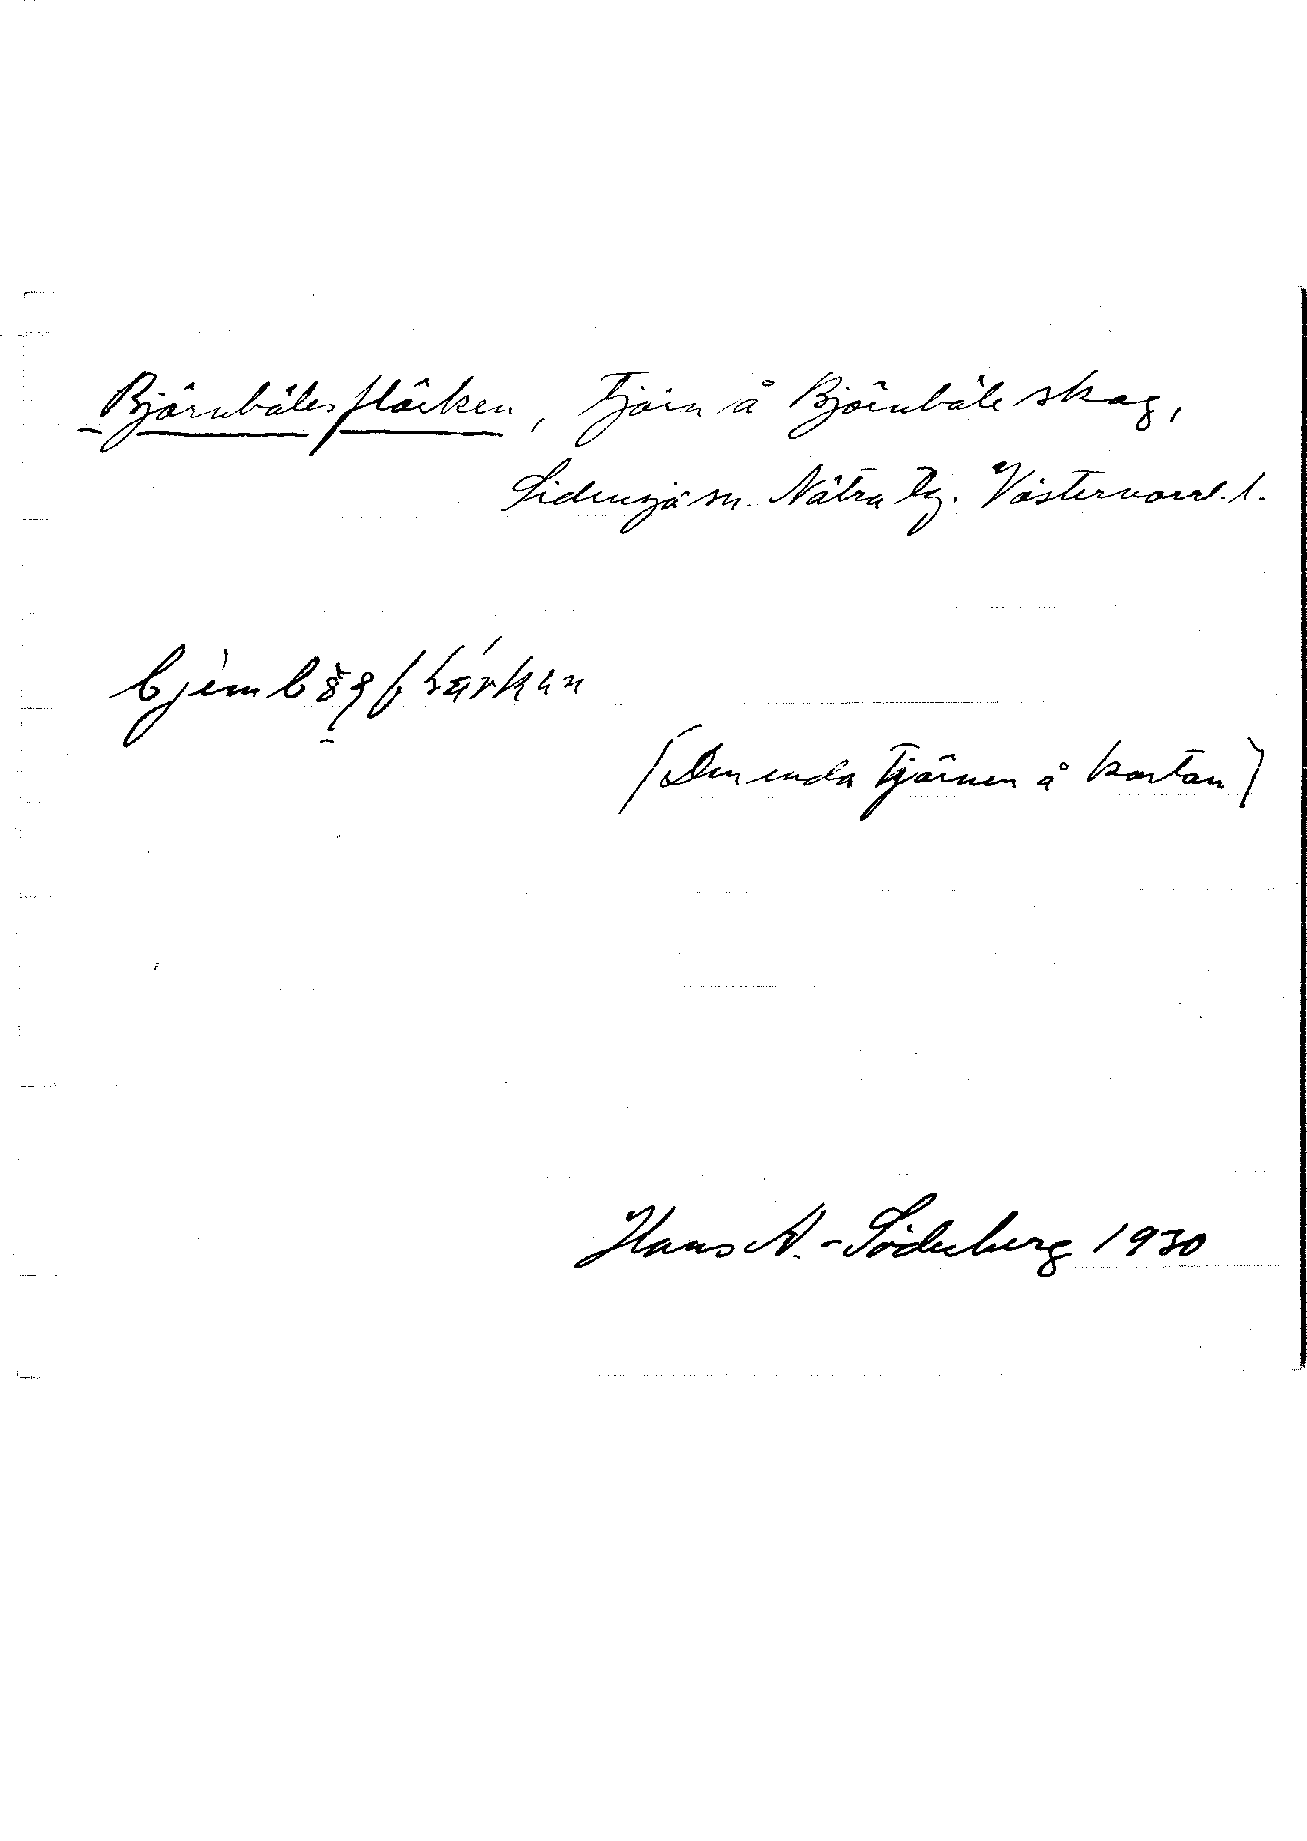 Björnbölesflärken, Tjärn å Björnböle skog,
Sidensjö sn. Nätra tg. Västernorrl. l.
(Den enda tjärnen å kartan)
Hans A. -Söderberg 1930